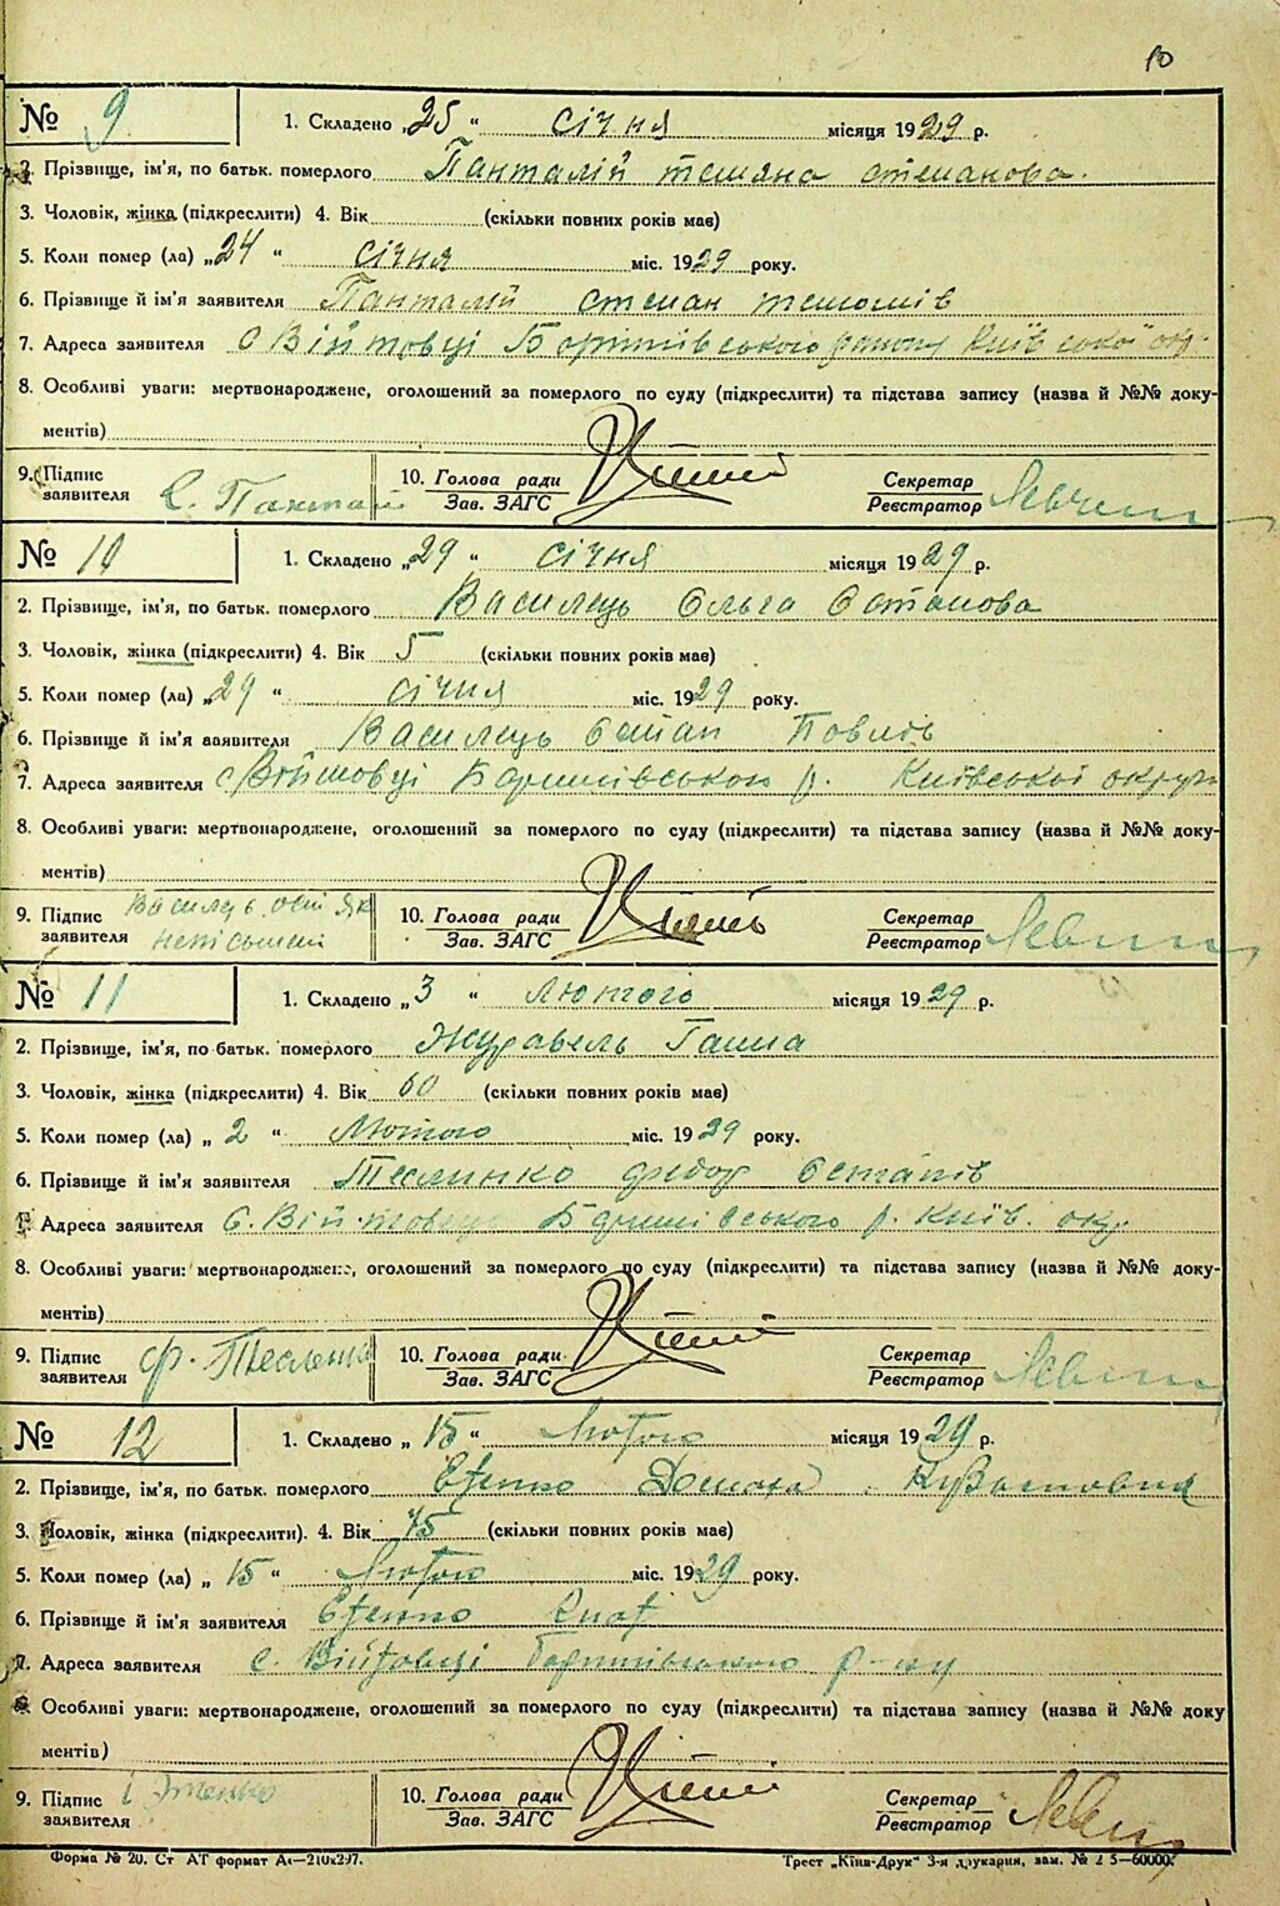 10
№ 9 1. Складено „25“ січня місяця 1929 р.
2. Прізвище, ім'я, по батьк. померлого Панталій тетяна степанова.
3. Чоловік, жінка (підкреслити) 4. Вік (скільки повних років має)
5. Коли помер (ла) „24“ січня міс. 1929 року.
6. Прізвище й ім'я заявителя Панталій степан
7. Адреса заявителя с Війтовці Боришпівського району Київської окр.
8. Особливі уваги: мертвонароджене, оголошений за померлого по суду (підкреслити) та підстава запису (назва й №№ доку-
ментів)
9. Підпис заявителя С. Пантал 10. Голова ради Зав. ЗАГС Секретар Реєстратор
№ 10 1. Складено „29“ січня місяця 1929 р.
2. Прізвище, ім'я, по батьк. померлого Василець Ольга Остапова
3. Чоловік, жінка (підкреслити) 4. Вік 5 (скільки повних років має)
5. Коли помер (ла) „29“ січня міс. 1929 року.
6. Прізвище й ім'я заявителя Василець Остап Повлів
7. Адреса заявителя с Війтовці Баришівського р. Київської округи
8. Особливі уваги: мертвонароджене, оголошений за померлого по суду (підкреслити) та підстава запису (назва й №№ доку-
ментів)
9. Підпис заявителя Василець 10. Голова ради Зав. ЗАГС Секретар Реєстратор
№ 11 1. Складено „3“ лютого місяця 1929 р.
2. Прізвище, ім'я, по батьк. померлого Журавель Ганна
3. Чоловік, жінка (підкреслити) 4. Вік 60 (скільки повних років має)
5. Коли помер (ла) „2“ Лютого міс. 1929 року.
6. Прізвище й ім'я заявителя Теслинко федор Остапів
7. Адреса заявителя С. Війтовець Баришівського р. Київ. окр.
8. Особливі уваги: мертвонароджене, оголошений за померлого по суду (підкреслити) та підстава запису (назва й №№ доку-
ментів)
9. Підпис заявителя ф. Тесленко 10. Голова ради Зав. ЗАГС Секретар Реєстратор
№ 12 1. Складено „15“ Лютого місяця 1929 р.
2. Прізвище, ім'я, по батьк. померлого
3. Чоловік, жінка (підкреслити). 4. Вік 75 (скільки повних років має)
5. Коли помер (ла) „15“ Лютого міс. 1929 року.
6. Прізвище й ім'я заявителя
7. Адреса заявителя с. Війтовці Баришівського р-ну
8. Особливі уваги: мертвонароджене, оголошений за померлого по суду (підкреслити) та підстава запису (назва й №№ доку
ментів)
9. Підпис заявителя 10. Голова ради Зав. ЗАГС Секретар Реєстратор
Форма № 20. Ст АТ формат А4—210x297. Трест „Київ-Друк“ 3-я друкарня, зам. №